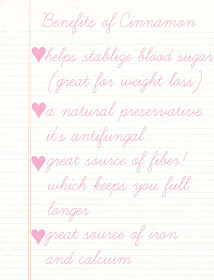 Benefits of Cinnamon
helps stablize blood sugar
(great for weight loss)
a natural preservative.
it's antifungal
great source of fiber!
which keeps you full
longer
great source of iron
and calcuim